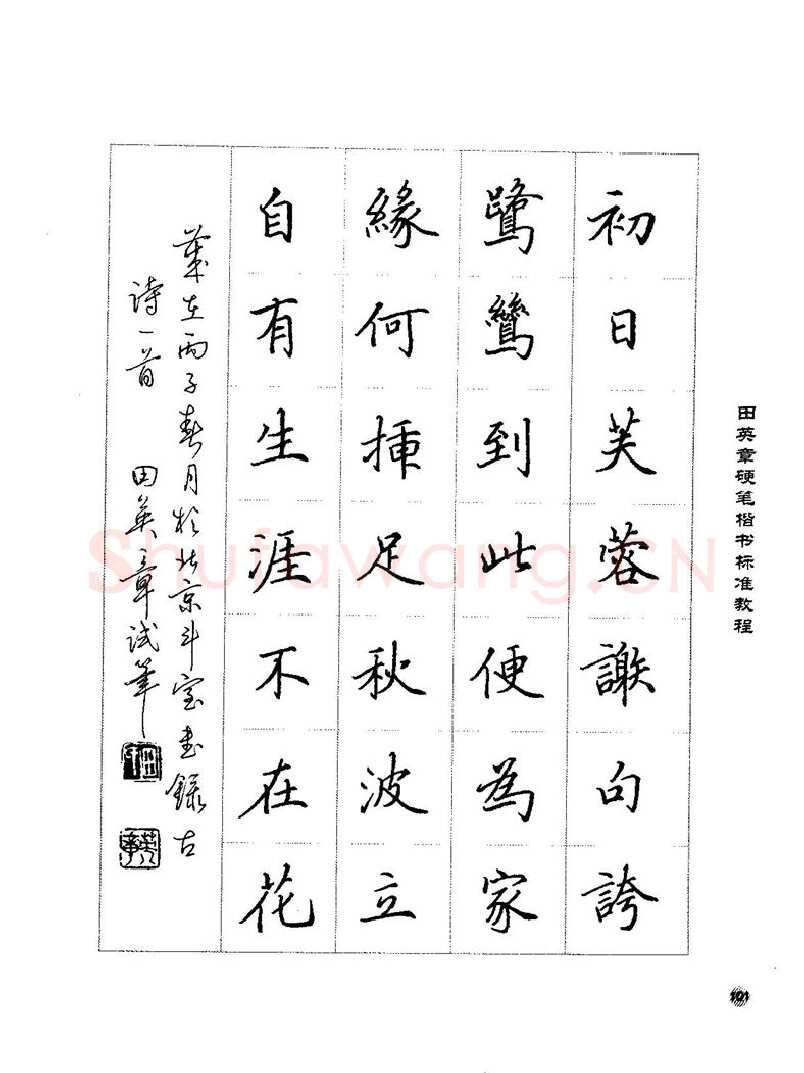 初日芙蓉謝句誇
鷺鷥到此便為家
緣何挿足秋波立
自有生涯不在花
歲在丙子春月於北京斗室書錄古
诗一首 田英章试筆
田英章硬笔楷书标准教程
101
Shufawang.CN